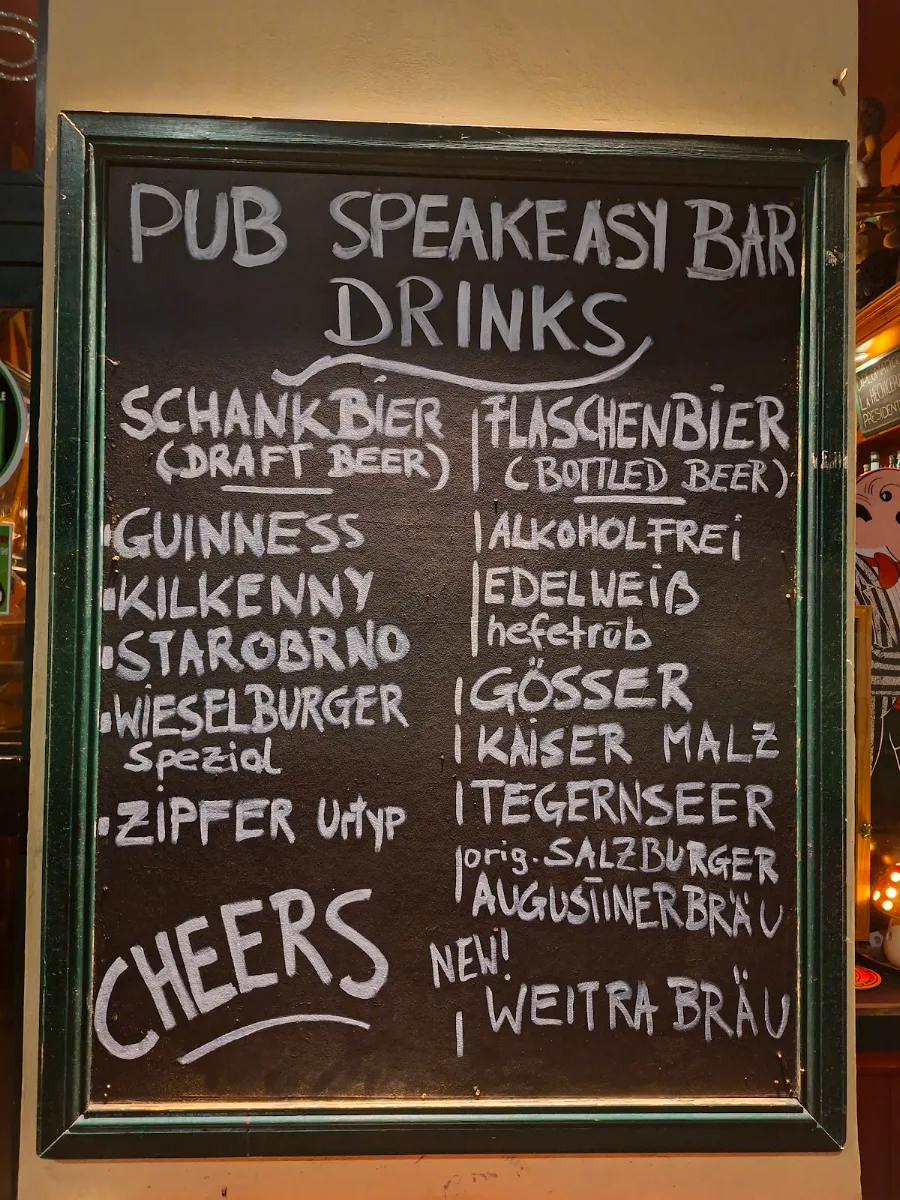 PUB SPEAKEASY BAR
DRINKS
SCHANKBiER
(DRAFT BEER)
GUINNESS
KILKENNY
STAROBRNO
WiESELBURGER
Spezial
ZiPFER Urtyp
CHEERS
FLASCHENBiER
(BOTTLED BEER)
ALKOHOLFREi
EDELWEiß
hefetrüb
GÖSSER
KAiSER MALZ
TEGERNSEER
orig. SALZBURGER
AUGUSTINERBRÄU
NEW!
WEITRA BRÄU
PRESIDENT